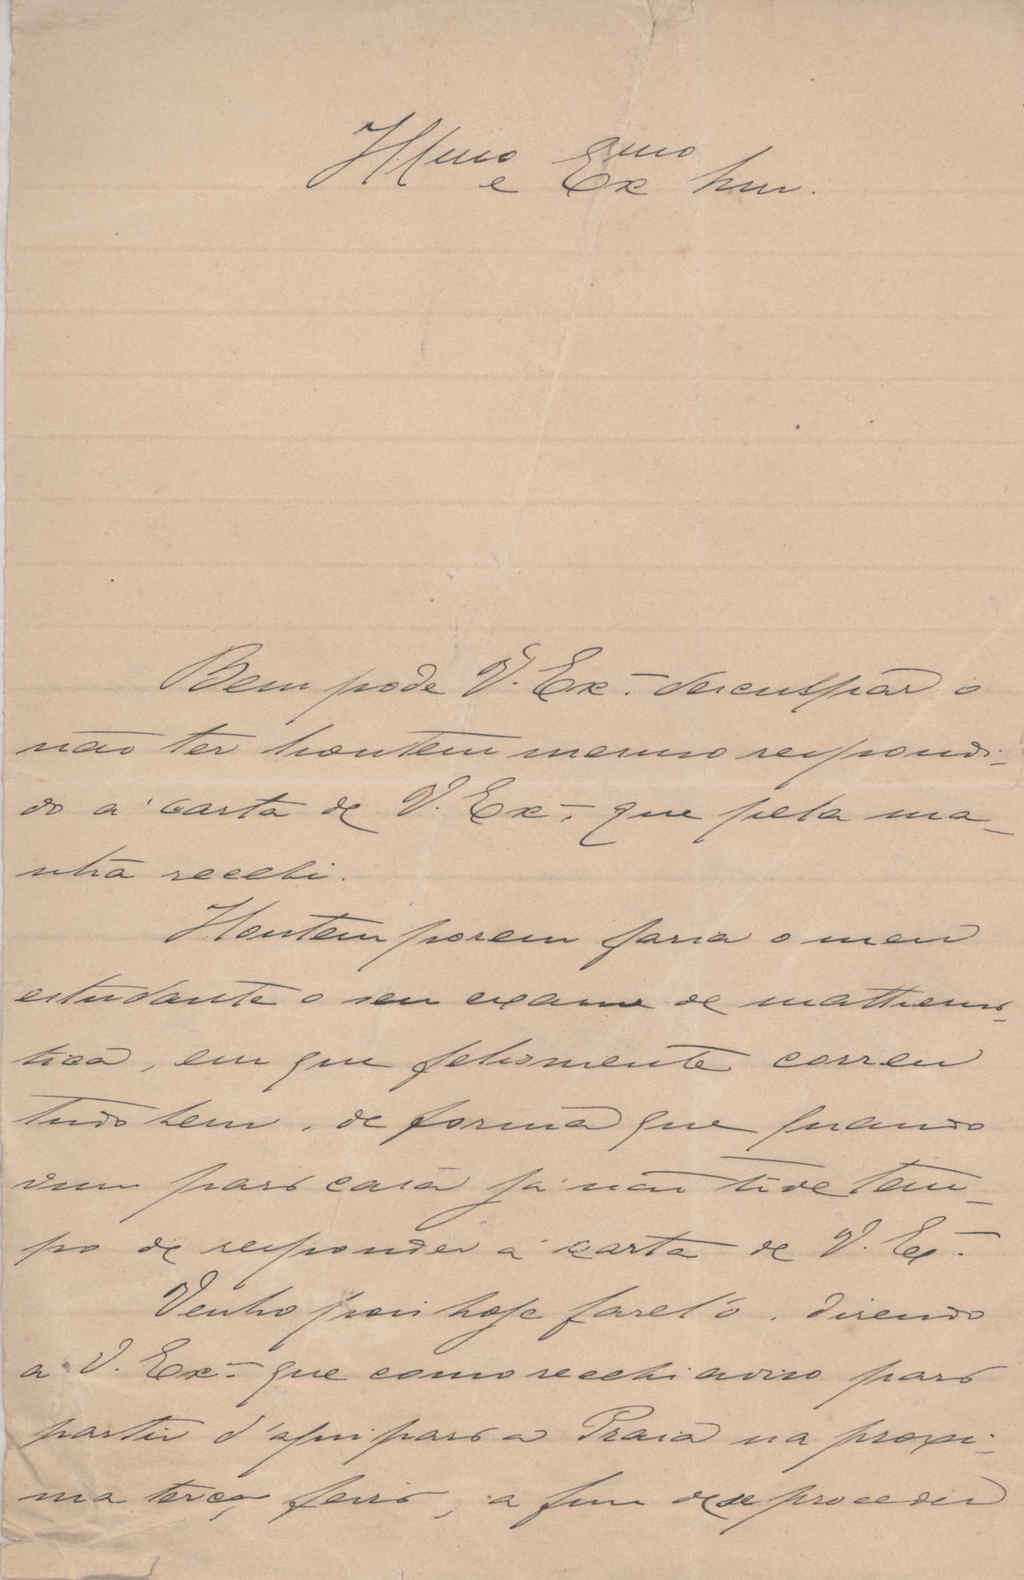 Illmo e Exmo Snr.
Bem póde V. Exª desculpar o
não ter hontem mesmo respondi-
do á carta de V. Exª, que pela ma-
nhã recebi.
Hontem porem fazia o meu
estudante o seu exame de mathema-
tica, em que felizmente correu
tudo bem, de forma que quando
vim para casa já não tive tem-
po de responder á carta de V. Exª
Venho pois hoje fazel'o, dizendo
a V. Exª que como recebi aviso para
partir d'aqui para a Praia na proxi-
ma terça feira, a fim de se proceder